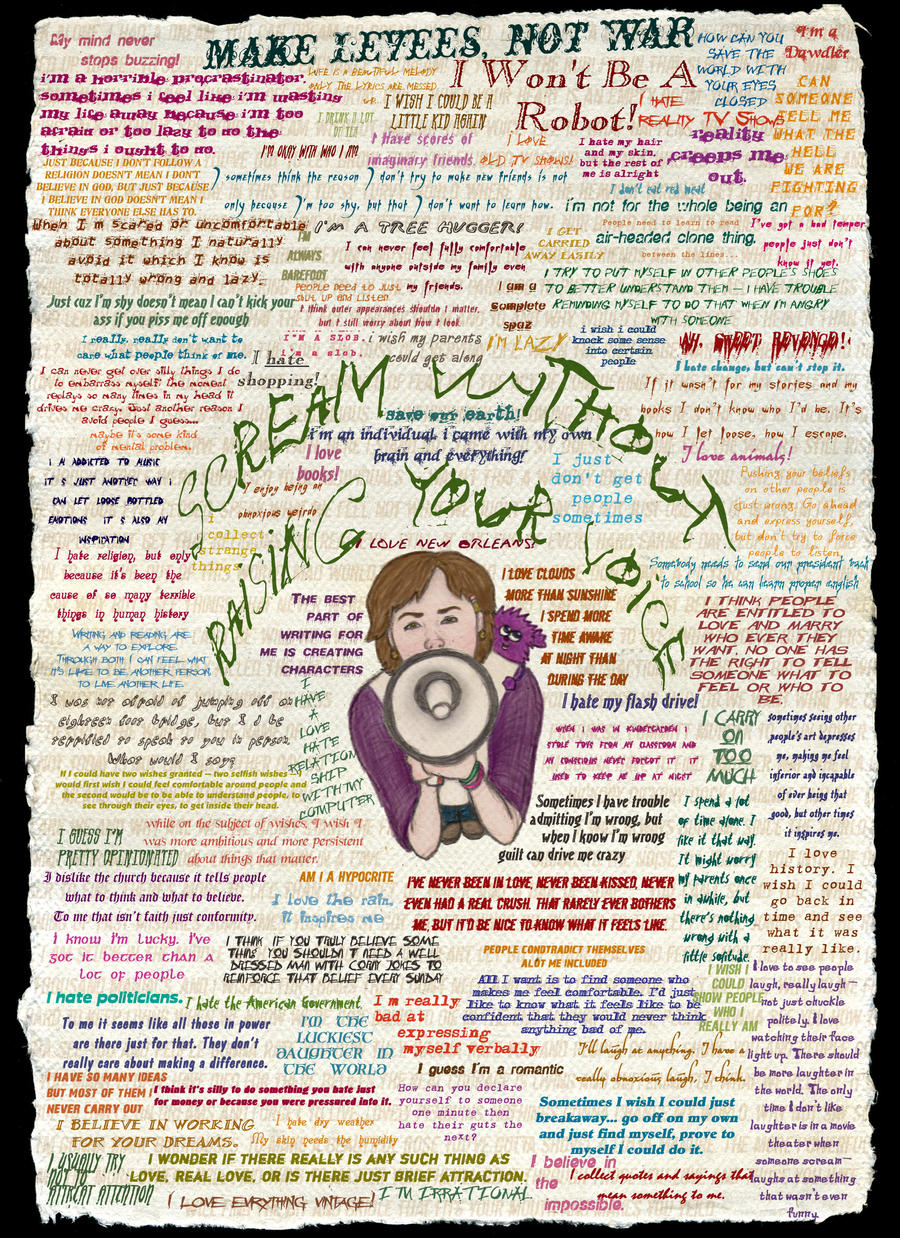 My mind never
stops buzzing!
MAKE LEVEES, NOT WAR
HOW CAN YOU
SAVE THE
WORLD WITH
YOUR EYES
CLOSED
I'm a
Dawdler
i'm a horrible procrastinator.
sometimes i feel like i'm wasting
my life away because i'm too
afraid or too lazy to do the
things i ought to do.
LIFE IS A BEAUTIFUL MELODY
ONLY THE LYRICS ARE MESSED
UP
I Won't Be A
Robot!
I WISH I COULD BE A
LITTLE KID AGAIN
I DRINK A LOT
OF TEA
I HATE
REALITY TV SHOWS
CAN
SOMEONE
TELL ME
WHAT THE
HELL
WE ARE
FIGHTING
FOR?
reality
creeps me
out.
I'M OKAY WITH WHO I AM
I have scores of
imaginary friends.
I LOVE
OLD TV SHOWS!
I hate my hair
and my skin,
but the rest of
me is alright
JUST BECAUSE I DON'T FOLLOW A
RELIGION DOESN'T MEAN I DON'T
BELIEVE IN GOD, BUT JUST BECAUSE
I BELIEVE IN GOD DOESN'T MEAN I
THINK EVERYONE ELSE HAS TO.
I sometimes think the reason I don't try to make new friends is not
only because I'm too shy, but that I don't want to learn how.
I don't eat red meat
i'm not for the whole being an
air-headed clone thing.
When I'm scared or uncomfortable
about something I naturally
avoid it which I know is
totally wrong and lazy.
I'M A TREE HUGGER!
I'M
ALWAYS
BAREFOOT
I can never feel fully comfortable
with anyone outside my family even
my friends.
I GET
CARRIED
AWAY EASILY
People need to learn to read
between the lines...
I've got a bad temper
people just don't
know it yet.
People need to just
shut up and listen
I am a
complete
spaz
I TRY TO PUT MYSELF IN OTHER PEOPLE'S SHOES
TO BETTER UNDERSTAND THEM — I HAVE TROUBLE
REMINDING MYSELF TO DO THAT WHEN I'M ANGRY
WITH SOMEONE
Just cuz I'm shy doesn't mean I can't kick your
ass if you piss me off enough
I think outer appearances shouldn't matter,
but I still worry about how I look.
I really, really don't want to
care what people think of me.
I'M A SLOB.
i'm a slob.
i wish my parents
could get along
I'M LAZY
i wish i could
knock some sense
into certain
people
AH, SWEET REVENGE!
I hate change, but can't stop it.
I hate
shopping!
I can never get over silly things I do
to embarrass myself. The moment
replays so many times in my head it
drives me crazy. Just another reason I
avoid people I guess...
maybe it's some kind
of mental problem.
SCREAM WITHOUT
RAISING YOUR VOICE
save our earth!
i'm an individual, i came with my own
brain and everything!
If it wasn't for my stories and my
books I don't know who I'd be. It's
how I let loose, how I escape.
I love
books!
I love animals!
I AM ADDICTED TO MUSIC
IT'S JUST ANOTHER WAY I
CAN LET LOOSE BOTTLED
EMOTIONS IT'S ALSO MY
INSPIRATION
I just
don't get
people
sometimes
Pushing your beliefs
on other people is
just wrong. Go ahead
and express yourself,
but don't try to force
people to listen.
I enjoy being an
obnoxious weirdo
i
collect
strange
things
I LOVE NEW ORLEANS!
I hate religion, but only
because it's been the
cause of so many terrible
things in human history
Somebody needs to send our president back
to school so he can learn proper english
I LOVE CLOUDS
MORE THAN SUNSHINE
I SPEND MORE
TIME AWAKE
AT NIGHT THAN
DURING THE DAY
THE BEST
PART OF
WRITING FOR
ME IS CREATING
CHARACTERS
I THINK PEOPLE
ARE ENTITLED TO
LOVE AND MARRY
WHO EVER THEY
WANT. NO ONE HAS
THE RIGHT TO TELL
SOMEONE WHAT TO
FEEL OR WHO TO
BE.
WRITING AND READING ARE
A WAY TO EXPLORE.
THROUGH BOTH I CAN FEEL WHAT
IT'S LIKE TO BE ANOTHER PERSON,
TO LIVE ANOTHER LIFE.
I
HAVE
A
LOVE
HATE
RELATION
SHIP
WITH MY
COMPUTER
I hate my flash drive!
I was not afraid of jumping off an
eighteen foot bridge, but I'd be
terrified to speak to you in person.
What would I say?
WHEN I WAS IN KINDERGARDEN I
STOLE TOYS FROM MY CLASSROOM AND
MY CONSCIOUS NEVER FORGOT IT. IT
USED TO KEEP ME UP AT NIGHT
I CARRY
ON
TOO
MUCH
sometimes seeing other
people's art depresses
me, making me feel
inferior and incapable
of ever being that
good, but other times
it inspires me.
If I could have two wishes granted — two selfish wishes I
would first wish I could feel comfortable around people and
the second would be to be able to understand people, to
see through their eyes, to get inside their head.
Sometimes I have trouble
admitting I'm wrong, but
when I know I'm wrong
guilt can drive me crazy
I spend a lot
of time alone. I
like it that way.
It might worry
my parents once
in awhile, but
there's nothing
wrong with a
little solitude.
I GUESS I'M
PRETTY OPINIONATED
while on the subject of wishes, I wish I
was more ambitious and more persistent
about things that matter.
I love
history. I
wish I could
go back in
time and see
what it was
really like.
I dislike the church because it tells people
what to think and what to believe.
To me that isn't faith just conformity.
AM I A HYPOCRITE
I love the rain,
it inspires me
I'VE NEVER BEEN IN LOVE, NEVER BEEN KISSED, NEVER
EVEN HAD A REAL CRUSH. THAT RARELY EVER BOTHERS
ME, BUT IT'D BE NICE TO KNOW WHAT IT FEELS LIKE.
I know I'm lucky. I've
got it better than a
lot of people
I THINK IF YOU TRULY BELIEVE SOME
THING YOU SHOULDN'T NEED A WELL
DRESSED MAN WITH CORNY JOKES TO
REINFORCE THAT BELIEF EVERY SUNDAY
PEOPLE CONDTRADICT THEMSELVES
ALOT ME INCLUDED
All I want is to find someone who
makes me feel comfortable. I'd just
like to know what it feels like to be
confident that they would never think
anything bad of me.
I WISH I
COULD
SHOW PEOPLE
WHO I
REALLY AM
I love to see people
laugh, really laugh —
not just chuckle
politely. I love
watching their face
light up. There should
be more laughter in
the world. The only
time I don't like
laughter is in a movie
theater when
someone scream—
laughs at something
that wasn't even
funny.
I hate politicians.
I hate the American Government
I'm really
bad at
expressing
myself verbally
To me it seems like all those in power
are there just for that. They don't
really care about making a difference.
I'M THE
LUCKIEST
DAUGHTER IN
THE WORLD
I'll laugh at anything. I have a
really obnoxious laugh, I think.
I guess I'm a romantic
I HAVE SO MANY IDEAS
BUT MOST OF THEM I
NEVER CARRY OUT
I think it's silly to do something you hate just
for money or because you were pressured into it.
How can you declare
yourself to someone
one minute then
hate their guts the
next?
Sometimes I wish I could just
breakaway... go off on my own
and just find myself, prove to
myself I could do it.
I BELIEVE IN WORKING
FOR YOUR DREAMS.
I hate dry weather
My skin needs the humidity
I USUALLY TRY
NOT TO
ATTRACT ATTENTION
I WONDER IF THERE REALLY IS ANY SUCH THING AS
LOVE, REAL LOVE, OR IS THERE JUST BRIEF ATTRACTION.
I believe in
the
impossible.
I collect quotes and sayings that
mean something to me.
I LOVE EVRYTHING VINTAGE!
I'M IRRATIONAL